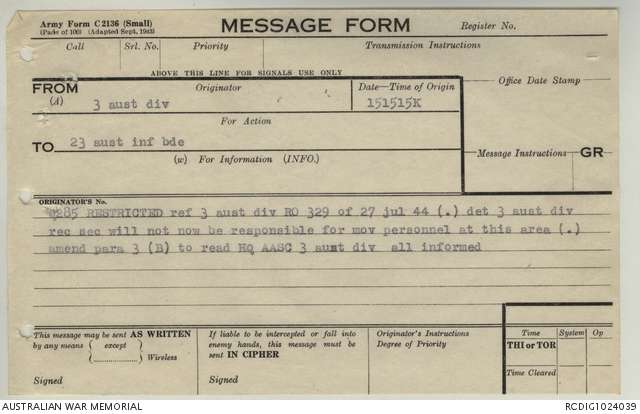 Army Form C2136 (Small)
(Pads of 100) (Adapted Sept. 1943)
MESSAGE FORM
Register No.
Call
Srl. No.
Priority
Transmission Instructions
ABOVE THIS LINE FOR SIGNALS USE ONLY
FROM
(A)
Originator
3 aust div
Date—Time of Origin
151515K
Office Date Stamp
For Action
TO
23 aust inf bde
(w) For Information (INFO.)
Message Instructions
GR
ORIGINATOR'S No.
RESTRICTED ref 3 aust div RO 329 of 27 jul 44 (.) det 3 aust div
rec sec will not now be responsible for mov personnel at this area (.)
amend para 3 (B) to read HQ AASC 3 aust div all informed
This message may be sent AS WRITTEN
by any means ( except )
( .................... ) Wireless
Signed
If liable to be intercepted or fall into
enemy hands, this message must be
sent IN CIPHER
Signed
Originator's Instructions
Degree of Priority
Time
System
Op
THI or TOR
Time Cleared
AUSTRALIAN WAR MEMORIAL
RCDIG1024039